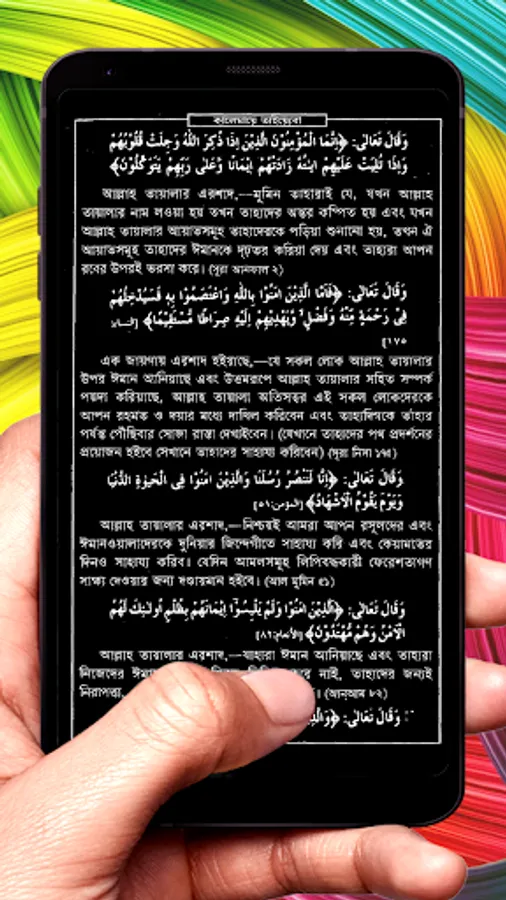 কালেমায়ে তাইয়্যেবা
وَقَالَ تَعَالٰى: ﴿اِنَّمَا الْمُؤْمِنُوْنَ الَّذِيْنَ اِذَا ذُكِرَ اللّٰهُ وَجِلَتْ قُلُوْبُهُمْ
وَاِذَا تُلِيَتْ عَلَيْهِمْ اٰيٰتُهٗ زَادَتْهُمْ اِيْمَانًا وَّعَلٰى رَبِّهِمْ يَتَوَكَّلُوْنَ﴾
আল্লাহ তায়ালার এরশাদ,—মুমিন তাহারাই যে, যখন আল্লাহ
তায়ালার নাম লওয়া হয় তখন তাহাদের অন্তর কম্পিত হয় এবং যখন
আল্লাহ তায়ালার আয়াতসমূহ তাহাদেরকে পড়িয়া শুনানো হয়, তখন ঐ
আয়াতসমূহ তাহাদের ঈমানকে দৃঢ়তর করিয়া দেয় এবং তাহারা আপন
রবের উপরই ভরসা করে। (সূরা আনফাল ২)
وَقَالَ تَعَالٰى: ﴿فَاَمَّا الَّذِيْنَ اٰمَنُوْا بِاللّٰهِ وَاعْتَصَمُوْا بِهٖ فَسَيُدْخِلُهُمْ
فِىْ رَحْمَةٍ مِّنْهُ وَفَضْلٍ وَّيَهْدِيْهِمْ اِلَيْهِ صِرَاطًا مُّسْتَقِيْمًا﴾ [النساء:
١٧٥]
এক জায়গায় এরশাদ হইয়াছে,—যে সকল লোক আল্লাহ তায়ালার
উপর ঈমান আনিয়াছে এবং উত্তমরূপে আল্লাহ তায়ালার সহিত সম্পর্ক
পয়দা করিয়াছে, আল্লাহ তায়ালা অতিসত্বর এই সকল লোকদেরকে
আপন রহমত ও দয়ার মধ্যে দাখিল করিবেন এবং তাহাদিগকে তাঁহার
পর্যন্ত পৌঁছিবার সোজা রাস্তা দেখাইবেন। (যেখানে তাহাদের পথ প্রদর্শনের
প্রয়োজন হইবে সেখানে তাহাদের সাহায্য করিবেন) (সূরা নিসা ১৭৫)
وَقَالَ تَعَالٰى: ﴿اِنَّا لَنَنْصُرُ رُسُلَنَا وَالَّذِيْنَ اٰمَنُوْا فِى الْحَيٰوةِ الدُّنْيَا
وَيَوْمَ يَقُوْمُ الْاَشْهَادُ﴾ [المؤمن:٥١]
আল্লাহ তায়ালার এরশাদ,—নিশ্চয়ই আমরা আপন রসূলদের এবং
ঈমানওয়ালাদেরকে দুনিয়ার জিন্দেগীতে সাহায্য করি এবং কেয়ামতের
দিনও সাহায্য করিব। যেদিন আমলসমূহ লিপিবদ্ধকারী ফেরেশতাগণ
সাক্ষ্য দেওয়ার জন্য দণ্ডায়মান হইবে। (আল মুমিন ৫১)
وَقَالَ تَعَالٰى: ﴿اَلَّذِيْنَ اٰمَنُوْا وَلَمْ يَلْبِسُوْۤا اِيْمَانَهُمْ بِظُلْمٍ اُولٰٓئِكَ لَهُمُ
الْاَمْنُ وَهُمْ مُّهْتَدُوْنَ﴾ [الأنعام:٨٢]
আল্লাহ তায়ালার এরশাদ,—যাহারা ঈমান আনিয়াছে এবং তাহারা
নিজেদের নাই, তাহাদের জন্যই
নিরাপত্তা, (আনআম ৮২)
وَقَالَ تَعَالٰى: